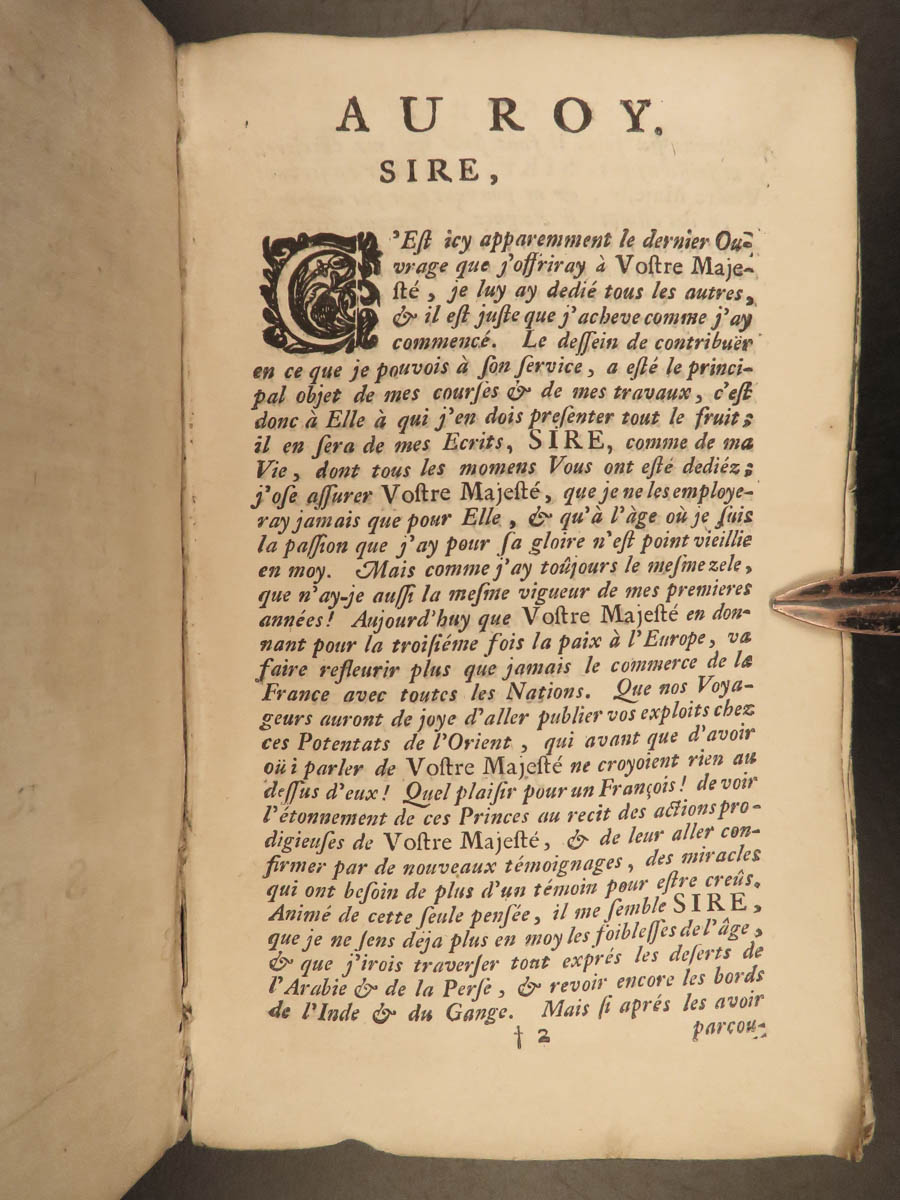 AU ROY.
SIRE,
C'Eſt icy apparemment le dernier Ou-
vrage que j'offriray à Voſtre Maje-
ſté, je luy ay dedié tous les autres,
& il eſt juſte que j'acheve comme j'ay
commencé. Le deſſein de contribuër
en ce que je pouvois à ſon ſervice, a eſté le princi-
pal objet de mes courſes & de mes travaux, c'eſt
donc à Elle à qui j'en dois preſenter tout le fruit;
il en ſera de mes Ecrits, SIRE, comme de ma
Vie, dont tous les momens Vous ont eſté dediéz;
j'oſe aſſurer Voſtre Majeſté, que je ne les employe-
ray jamais que pour Elle, & qu'à l'àge où je ſuis
la paſſion que j'ay pour ſa gloire n'eſt point vieillie
en moy. Mais comme j'ay toûjours le meſme zele,
que n'ay-je auſſi la meſme vigueur de mes premieres
années! Aujourd'huy que Voſtre Majeſté en don-
nant pour la troiſiéme fois la paix à l'Europe, va
faire refleurir plus que jamais le commerce de la
France avec toutes les Nations. Que nos Voya-
geurs auront de joye d'aller publier vos exploits chez
ces Potentats de l'Orient, qui avant que d'avoir
oüi parler de Voſtre Majeſté ne croyoient rien au
deſſus d'eux! Quel plaiſir pour un François! de voir
l'étonnement de ces Princes au recit des actions pro-
digieuſes de Voſtre Majeſté, & de leur aller con-
firmer par de nouveaux témoignages, des miracles
qui ont beſoin de plus d'un témoin pour eſtre creûs.
Animé de cette ſeule penſée, il me ſemble SIRE,
que je ne ſens déja plus en moy les foibleſſes de l'âge,
& que j'irois traverſer tout exprés les deſerts de
l'Arabie & de la Perſe, & revoir encore les bords
de l'Inde & du Gange. Mais ſi aprés les avoir
† 2 parcou-